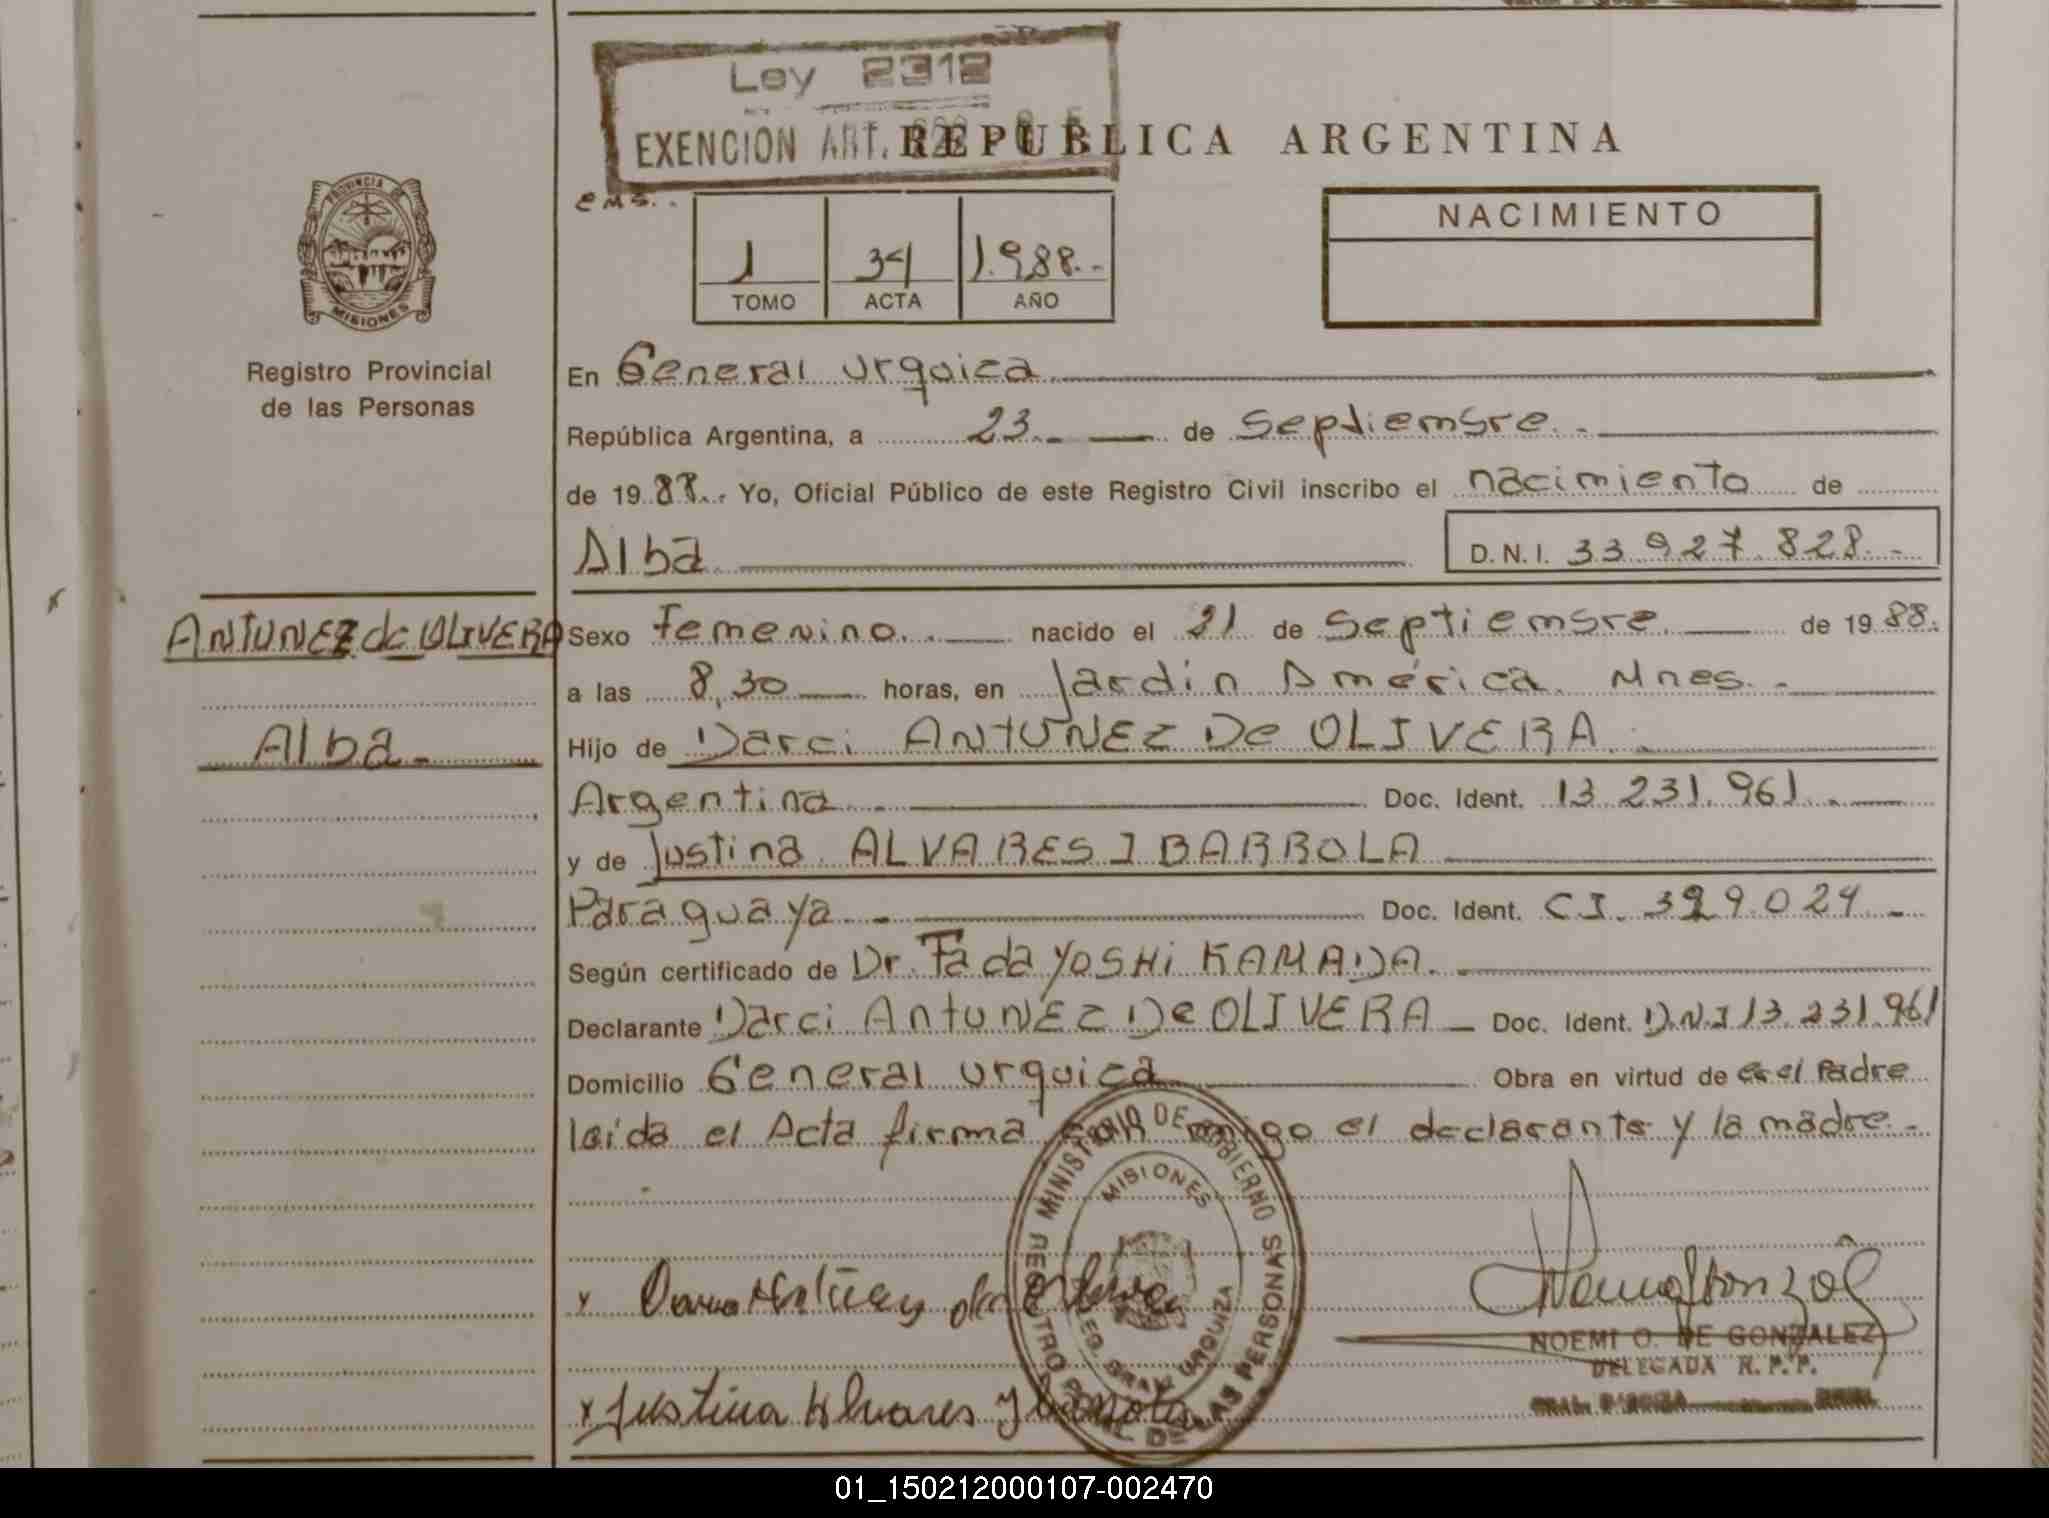 Ley 2312
EXENCION ART.
REPUBLICA ARGENTINA
PROVINCIA DE
MISIONES
Registro Provincial
de las Personas
1 34 1.988.-
TOMO ACTA AÑO
NACIMIENTO
En General Urquiza
República Argentina, a 23.- de Septiembre.-
de 19 88.. Yo, Oficial Público de este Registro Civil inscribo el nacimiento de
Alba D.N.I. 33 927 828.-
ANTUNEZ de OLIVERA
Alba.-
Sexo Femenino.- nacido el 21 de Septiembre. de 19 88.
a las 8,30 horas, en Jardin América. Mnes.-
Hijo de Darci ANTUNEZ De OLIVERA.
Argentina.- Doc. Ident. 13.231.961.-
y de Justina ALVARES IBARROLA
Paraguaya.- Doc. Ident. C.I. 329.024.-
Según certificado de Dr. Tadayoshi KAMADA.
Declarante Darci Antunez De OLIVERA - Doc. Ident. D.N.I 13.231.961
Domicilio General Urquiza Obra en virtud de es el Padre
leida el Acta firma conmigo el declarante y la madre.-
MINISTERIO DE GOBIERNO
MISIONES
DE LAS PERSONAS
DEG. GRAL. URQUIZA
x Justina Alvares Ibarrola
NOEMI O. DE GONZALEZ
DELEGADA R.P.P.
01_150212000107-002470